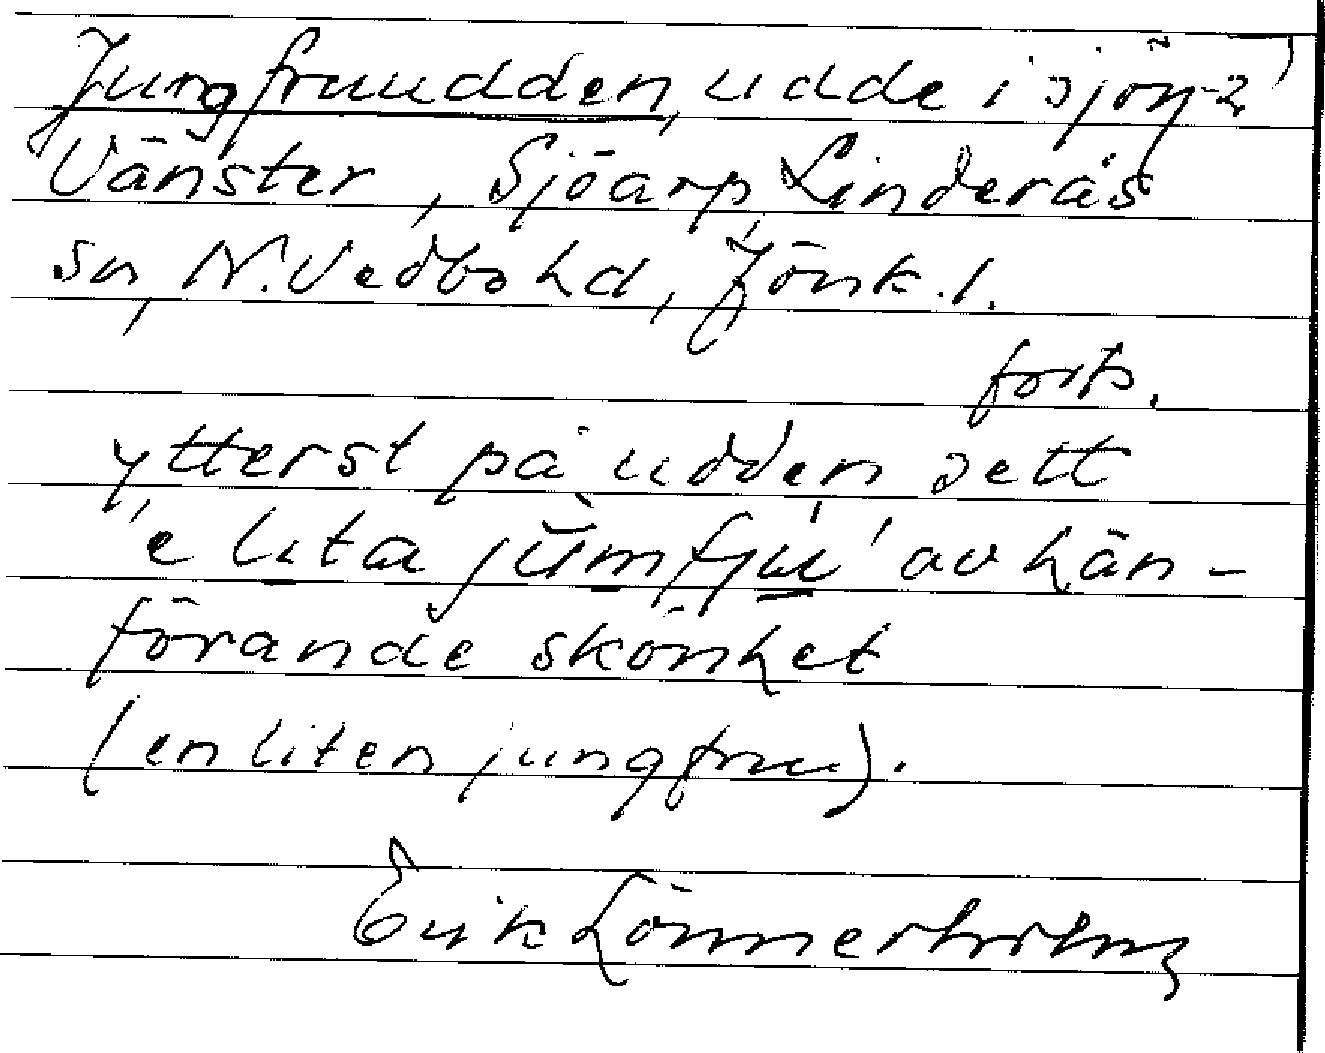 Jungfruudden, udde i sjön 2)
Vänster, Sjöarp, Linderås
sn, N. Vedbo hd, Jönk. l.
forts.
ytterst på udden sett
'e lita jùmfrú' av hän-
förande skönhet
(en liten jungfru).
Erik Lönnerholm